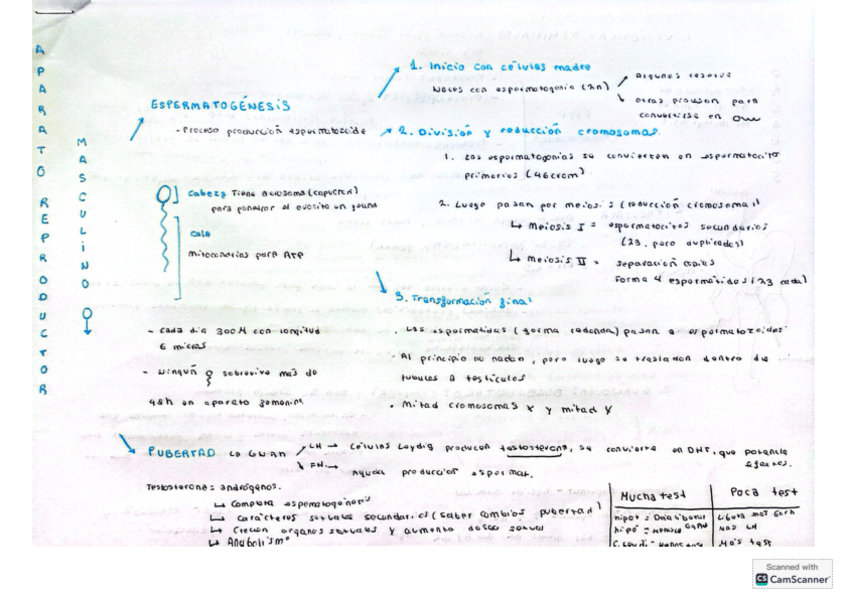 APARATO REPRODUCTOR
MASCULINO
ESPERMATOGÉNESIS
- Proceso producción espermatozoide
1. Inicio con células madre
Naces con espermatogonia (2n)
algunas reserva
otras, procesan para
convertirse en
2. División y reducción cromosomas.
1. Las espermatogonias se convierten en espermatocito
primarios (46crom)
2. Luego pasan por meiosis (reducción cromosomas)
↳ Meiosis I = espermatocitos secundarios
(23, pero duplicados)
↳ Meiosis II = separación copias
Forma 4 espermátidas (23 cada)
Cabeza Tiene acrosoma
para penetrar el ovocito
Cola
mitocondrias para ATP
3. Transformación final
. Las espermatidas (forma redonda) pasan a espermatozoides
. Al principio no nadan, pero luego se trasladan dentro de
tubulos a testículos
. Mitad cromosomas X y mitad Y
- Cada dia 300M con longitud
6 micras
- Ningún sobrevive más de
48h en aparato femenino
PUBERTAD La GnRH
LH → Células Leydig producen testosterona, se convierte en DHT, que potencia
efectos.
FH → Ayuda producción espermat.
Testosterona = andrógenos.
↳ Completa espermatogénesis
↳ Carácteres sexuales secundarios (saber cambios pubertad)
↳ Creción organos sexuales y aumento deseo sexual
↳ Anabolismo
Mucha test
Poca test
Libera mas GnRH
Más LH
Más test
Scanned with
CS CamScanner